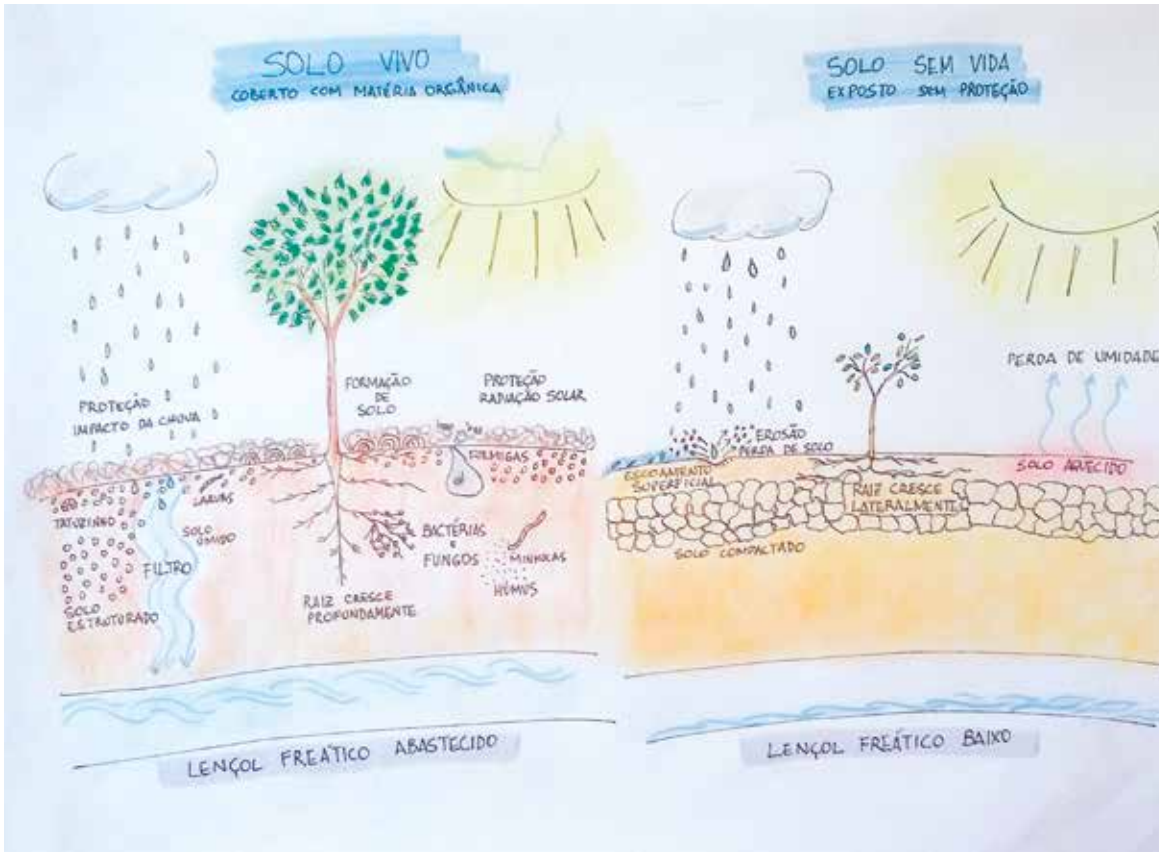 SOLO VIVO
COBERTO COM MATÉRIA ORGÂNICA
PROTEÇÃO
IMPACTO DA CHUVA
FORMAÇÃO
DE
SOLO
PROTEÇÃO
RADIAÇÃO SOLAR
FORMIGAS
TATUZINHO
LARVAS
SOLO
ÚMIDO
FILTRO
SOLO
ESTRUTURADO
BACTÉRIAS
E
FUNGOS
MINHOCAS
HÚMUS
RAIZ CRESCE
PROFUNDAMENTE
LENÇOL FREÁTICO ABASTECIDO
SOLO SEM VIDA
EXPOSTO SEM PROTEÇÃO
PERDA DE UMIDADE
EROSÃO
PERDA DE SOLO
ESCOAMENTO
SUPERFICIAL
SOLO AQUECIDO
RAIZ CRESCE
LATERALMENTE
SOLO COMPACTADO
LENÇOL FREÁTICO BAIXO